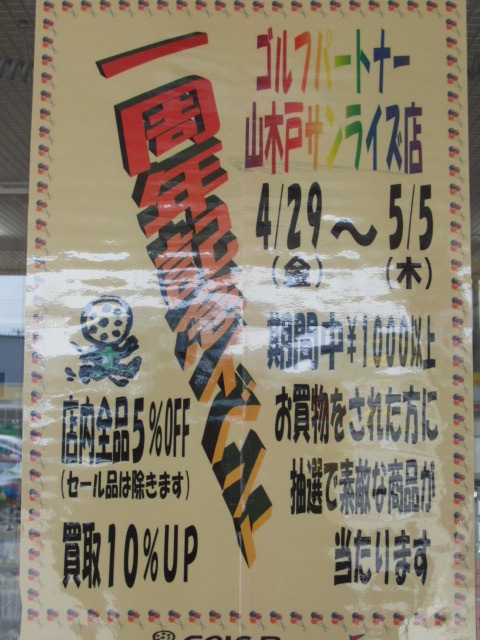 ゴルフパートナー
山木戸サンライズ店
一周年記念イベント
4/29～5/5
(金) (木)
期間中¥1000以上
お買物をされた方に
抽選で素敵な商品が
当たります
店内全品5%OFF
(セール品は除きます)
買取10%UP